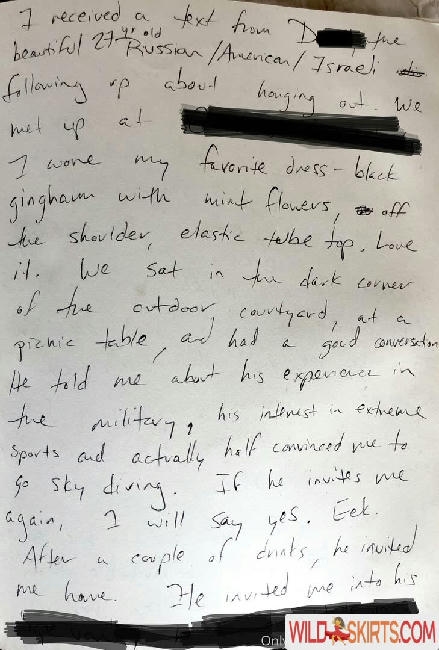 I received a text from D the
beautiful 27 yr old Russian/American/Israeli
following up about hanging out. We
met up at
I wore my favorite dress - black
gingham with mint flowers, off
the shoulder, elastic tube top. Love
it. We sat in the dark corner
of the outdoor courtyard, at a
picnic table, and had a good conversation
He told me about his experience in
the military, his interest in extreme
sports and actually half convinced me to
go sky diving. If he invites me
again, I will say yes. Eek.
After a couple of drinks, he invited
me home. He invited me into his
Onl
WILDSKIRTS.COM